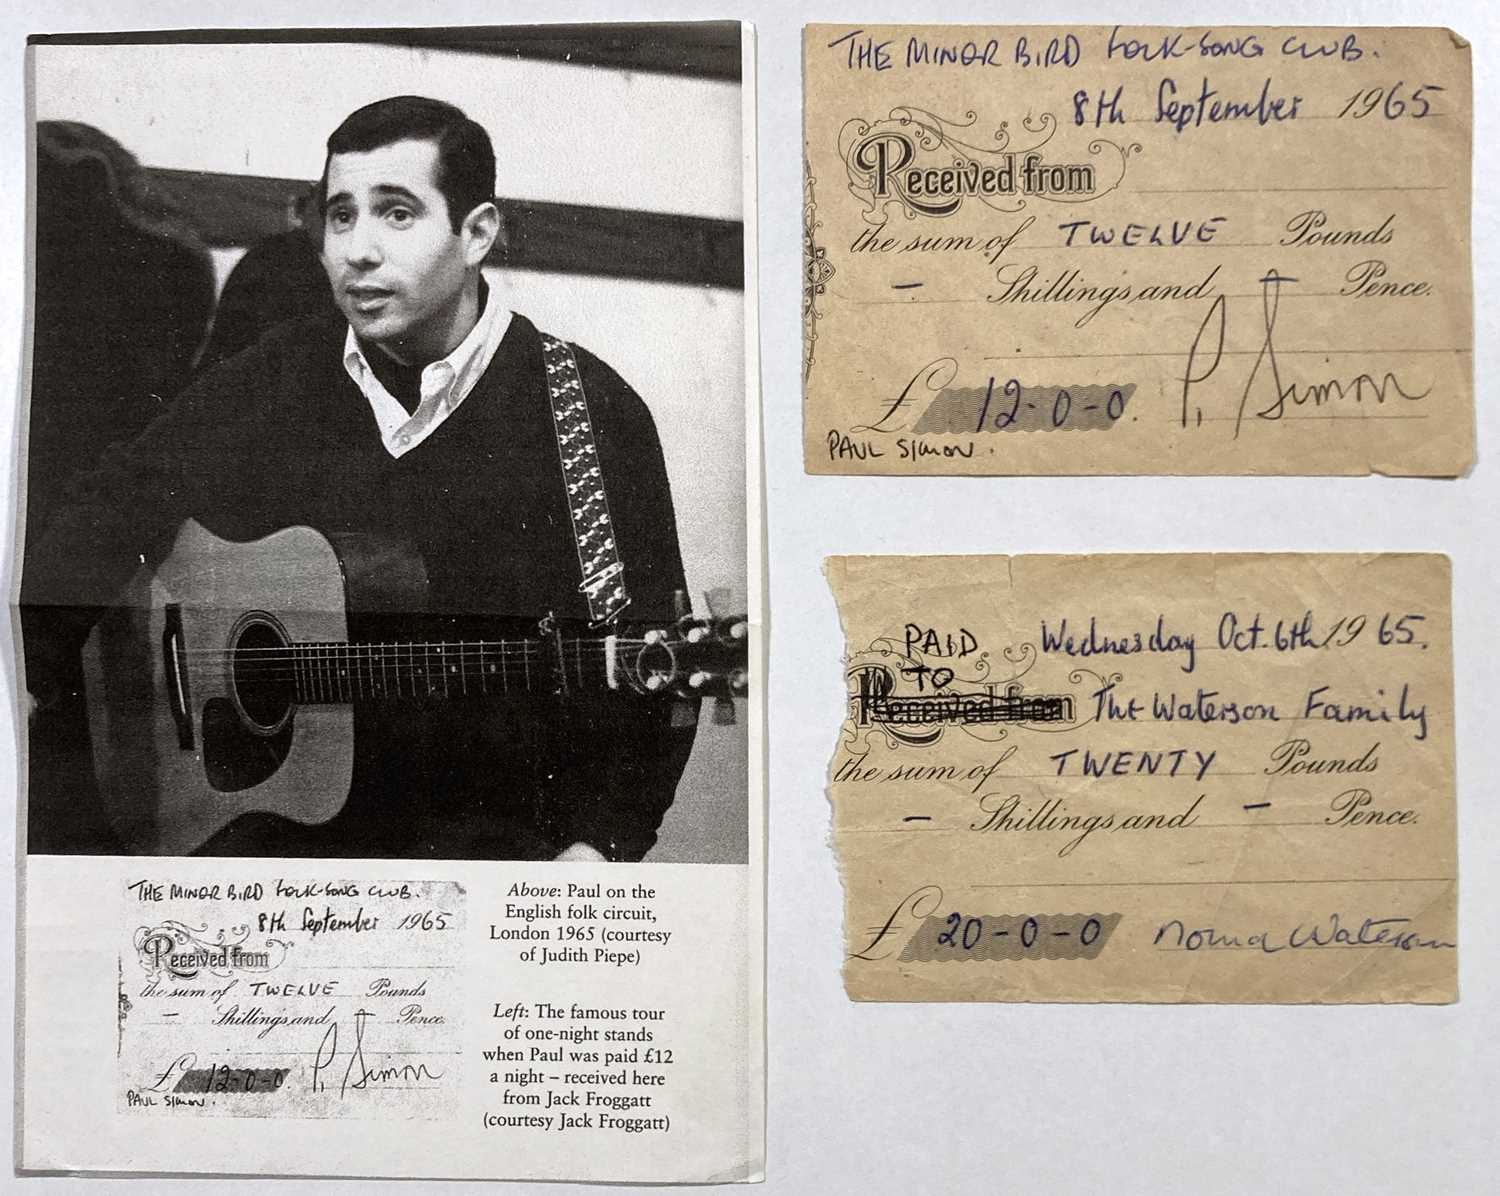 THE MINOR BIRD FOLK-SONG CLUB.
8th September 1965
Received from
the sum of TWELVE Pounds
- Shillings and - Pence.
£ 12-0-0. P. Simon
PAUL SIMON.
Above: Paul on the
English folk circuit,
London 1965 (courtesy
of Judith Piepe)
Left: The famous tour
of one-night stands
when Paul was paid £12
a night – received here
from Jack Froggatt
(courtesy Jack Froggatt)
THE MINOR BIRD FOLK-SONG CLUB.
8th September 1965
Received from
the sum of TWELVE Pounds
- Shillings and - Pence.
£ 12-0-0. P. Simon
PAUL SIMON.
PAID Wednesday Oct. 6th 1965.
TO
Received from The Waterson Family
the sum of TWENTY Pounds
- Shillings and - Pence.
£ 20-0-0 Norma Waterson